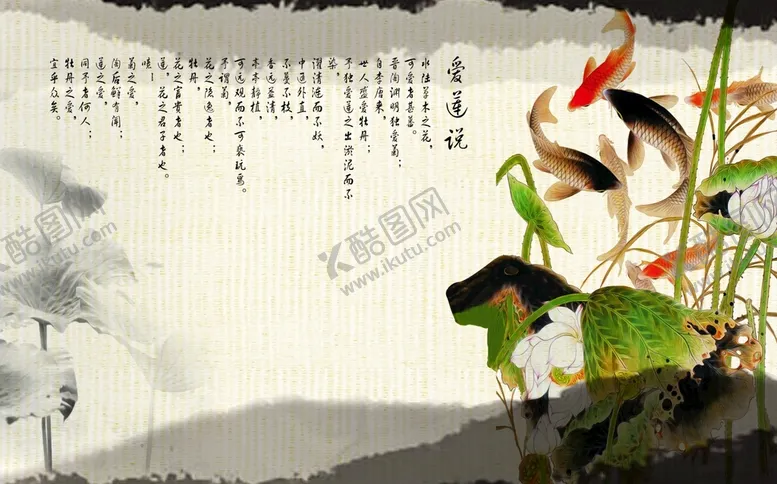 爱莲说
水陆草木之花，
可爱者甚蕃。
晋陶渊明独爱菊；
自李唐来，
世人盛爱牡丹；
予独爱莲之出淤泥而不
染，
濯清涟而不妖，
中通外直，
不蔓不枝，
香远益清，
亭亭静植，
可远观而不可亵玩焉。
予谓菊，
花之隐逸者也；
牡丹，
花之富贵者也；
莲，花之君子者也。
噫！
菊之爱，
陶后鲜有闻；
莲之爱，
同予者何人；
牡丹之爱，
宜乎众矣。
酷图网
www.ikutu.com
酷图网
www.ikutu.com
酷图网
www.ikutu.com